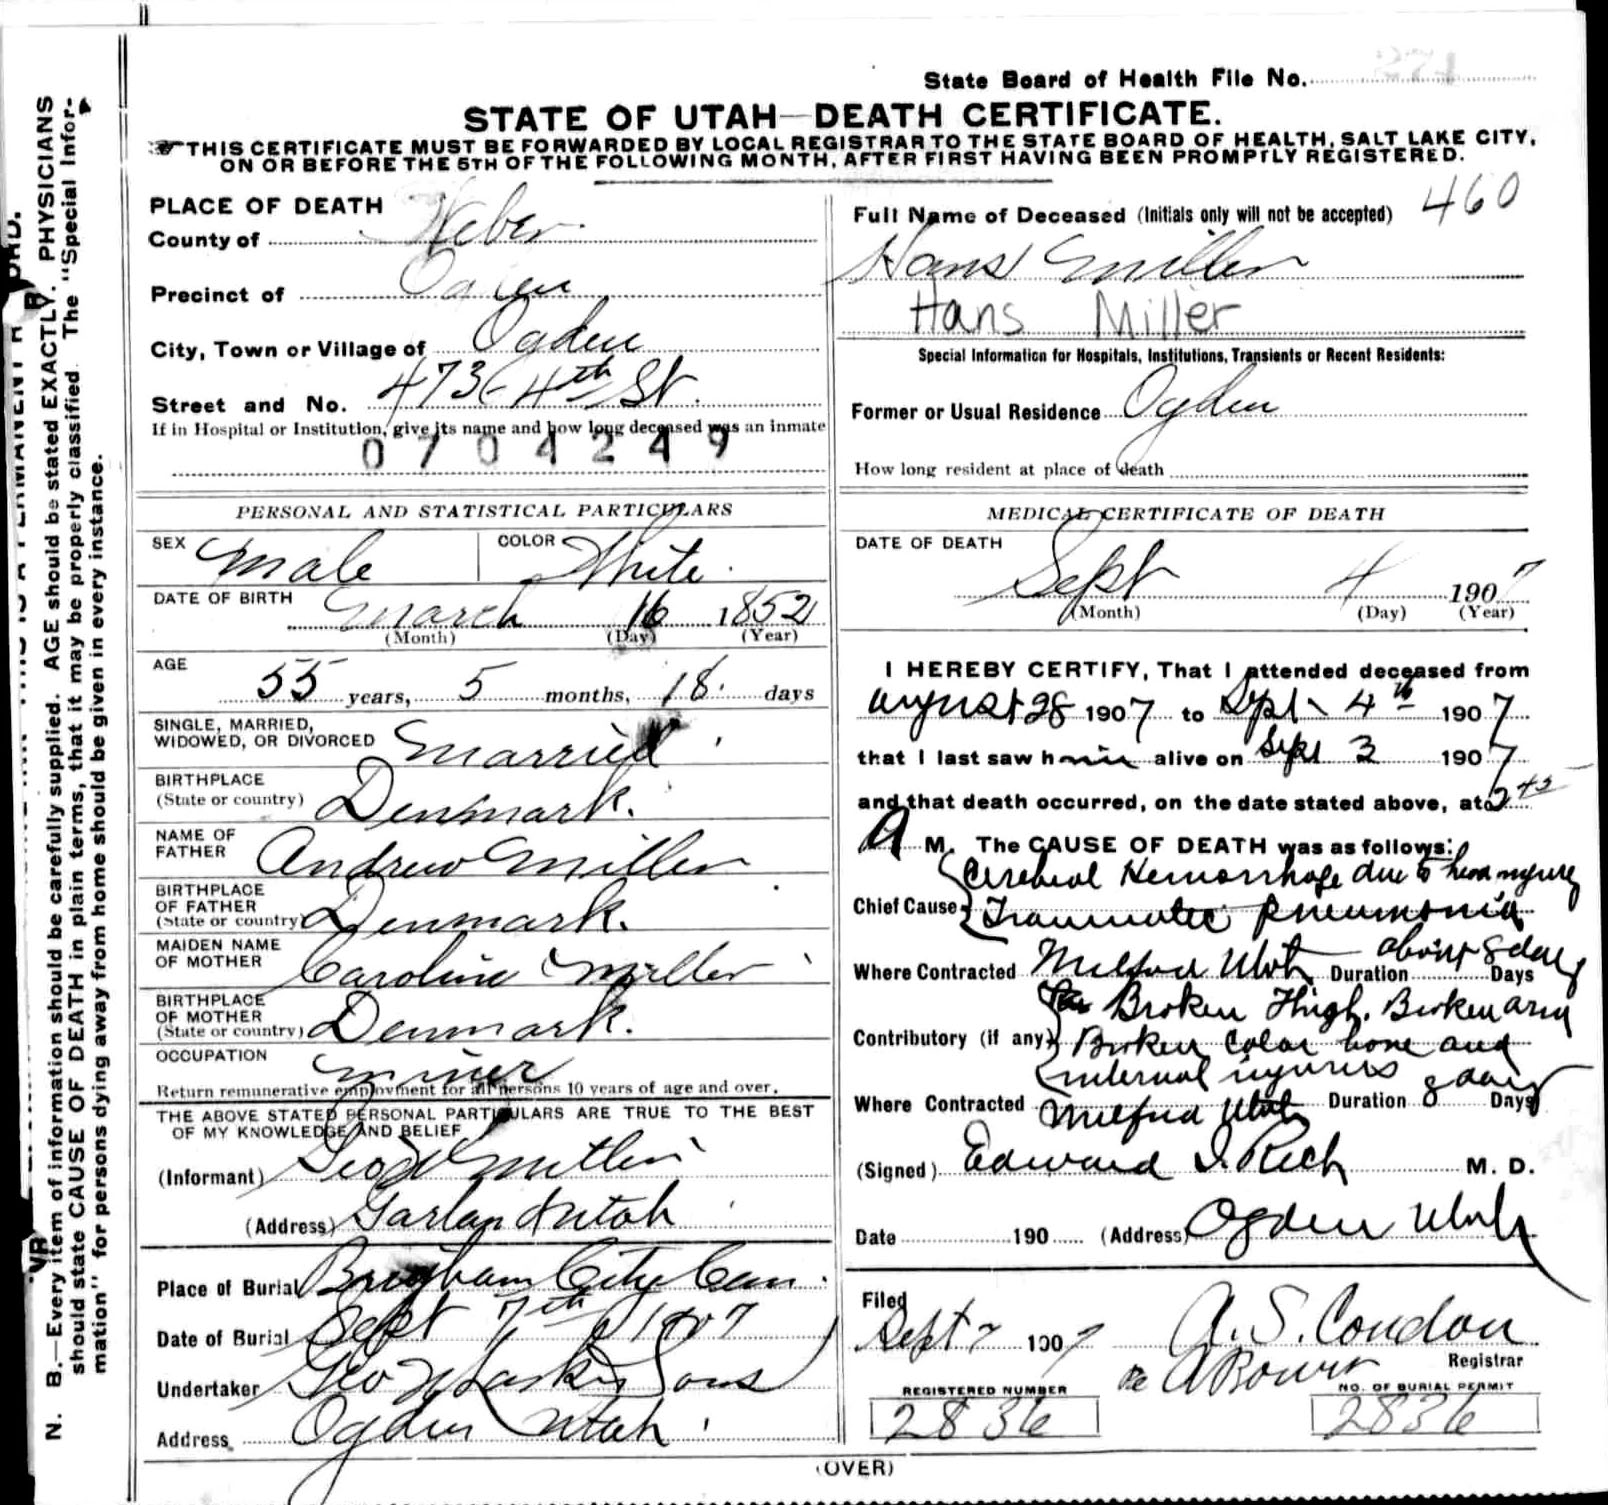 State Board of Health File No.
STATE OF UTAH—DEATH CERTIFICATE.
THIS CERTIFICATE MUST BE FORWARDED BY LOCAL REGISTRAR TO THE STATE BOARD OF HEALTH, SALT LAKE CITY,
ON OR BEFORE THE 5TH OF THE FOLLOWING MONTH, AFTER FIRST HAVING BEEN PROMPTLY REGISTERED.
N. B.—Every item of information should be carefully supplied. AGE should be stated EXACTLY. PHYSICIANS
should state CAUSE OF DEATH in plain terms, that it may be properly classified. The "Special Infor-
mation" for persons dying away from home should be given in every instance.
PLACE OF DEATH
County of Weber
Precinct of Ogden
City, Town or Village of Ogden
Street and No. 473 4th St.
If in Hospital or Institution, give its name and how long deceased was an inmate
0704249
PERSONAL AND STATISTICAL PARTICULARS
SEX Male COLOR White
DATE OF BIRTH March 16 1852
(Month) (Day) (Year)
AGE 55 years, 5 months, 18 days
SINGLE, MARRIED,
WIDOWED, OR DIVORCED Married
BIRTHPLACE
(State or country) Denmark.
NAME OF
FATHER Andrew Miller
BIRTHPLACE
OF FATHER
(State or country) Denmark.
MAIDEN NAME
OF MOTHER Caroline Miller
BIRTHPLACE
OF MOTHER
(State or country) Denmark.
OCCUPATION Miner
Return remunerative employment for all persons 10 years of age and over.
THE ABOVE STATED PERSONAL PARTICULARS ARE TRUE TO THE BEST
OF MY KNOWLEDGE AND BELIEF
(Informant)
(Address) Garland Utah
Place of Burial Brigham City Cem.
Date of Burial Sept 7th 1907
Undertaker Geo Larkin Sons
Address Ogden Utah
460
Full Name of Deceased (Initials only will not be accepted)
Hans Miller
Hans Miller
Special Information for Hospitals, Institutions, Transients or Recent Residents:
Former or Usual Residence Ogden
How long resident at place of death
MEDICAL CERTIFICATE OF DEATH
DATE OF DEATH
Sept 4 1907
(Month) (Day) (Year)
I HEREBY CERTIFY, That I attended deceased from
August 28 1907 to Sept 4th 1907
that I last saw him alive on Sept 3 1907
and that death occurred, on the date stated above, at 2 45
A M. The CAUSE OF DEATH was as follows:
Cerebral Hemorrhage due to head injury
Chief Cause Traumatic Pneumonia
Where Contracted Milford Utah Duration about 8 days Days
Broken Thigh, Broken arm
Contributory (if any) Broken Colar bone and
internal injuries
Where Contracted Milford Utah Duration 8 days Days
(Signed) Edward I. Rich M. D.
Date 190 (Address) Ogden Utah
Filed
Sept 7 1907 A. S. Condon
Registrar
REGISTERED NUMBER
2836
NO. OF BURIAL PERMIT
2836
(OVER)